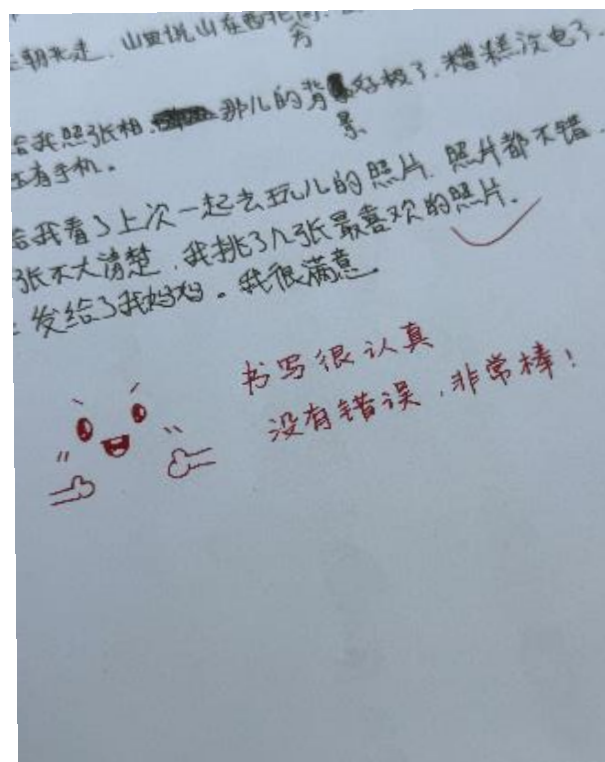 朝北走。山田说山在西北角。
旁
给我照张相。那儿的背好极了。糟糕没电了。
景
还有手机。
给我看了上次一起去玩儿的照片。照片都不错。
张不大清楚。我挑了几张最喜欢的照片。
发给了我妈妈。我很满意。
书写很认真
没有错误，非常棒！